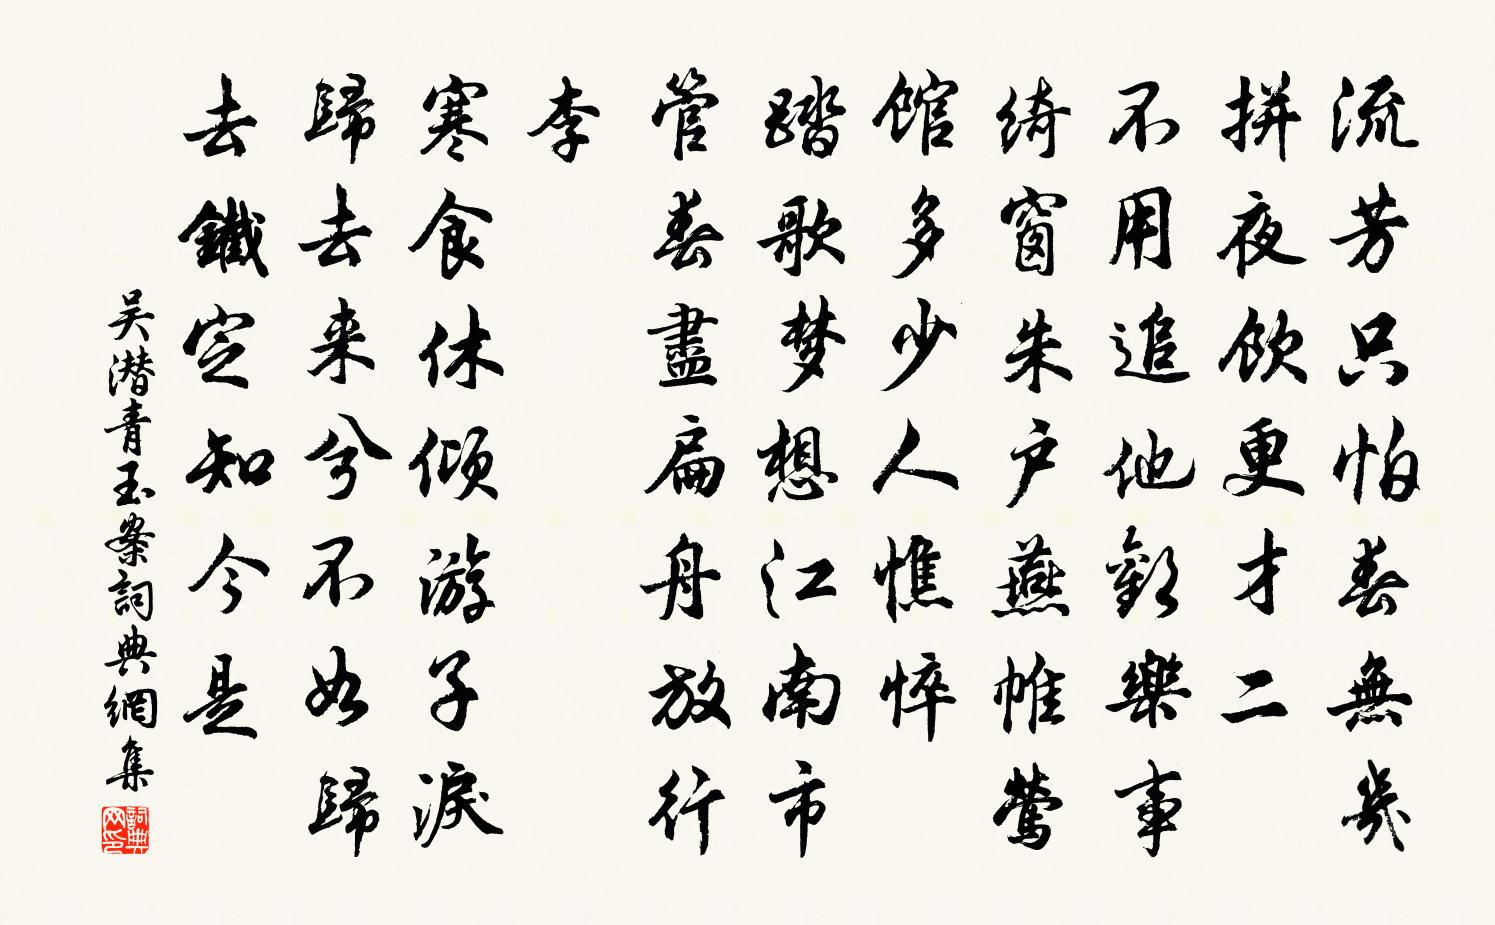 流芳只怕春無幾
拼夜飲更才二
不用追他歡樂事
綺窗朱户燕帷鶯
館多少人憔悴
踏歌梦想江南市
管春盡扁舟放行
李
寒食休倾游子淚
歸去来兮不如歸
去鐵定知今是
吴潜青玉案詞典網集
詞典网印